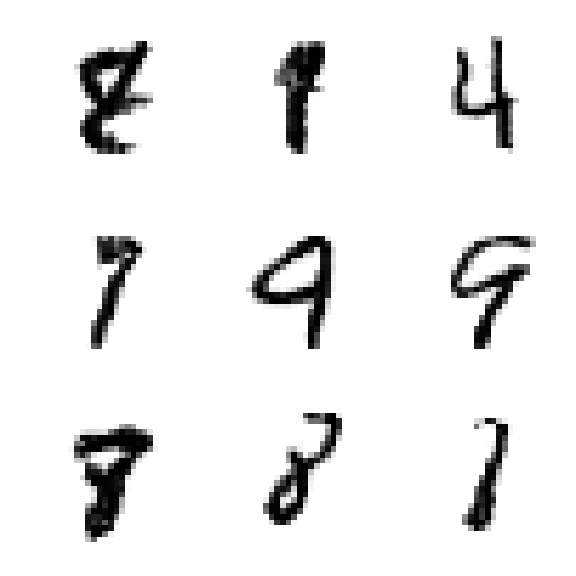 8 9 4
7 9 9
8 8